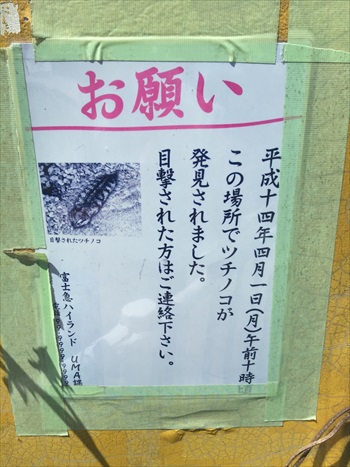 お願い
平成十四年四月一日(月)午前十時
この場所でツチノコが
発見されました。
目撃された方はご連絡下さい。
目撃されたツチノコ
富士急ハイランド UMA課